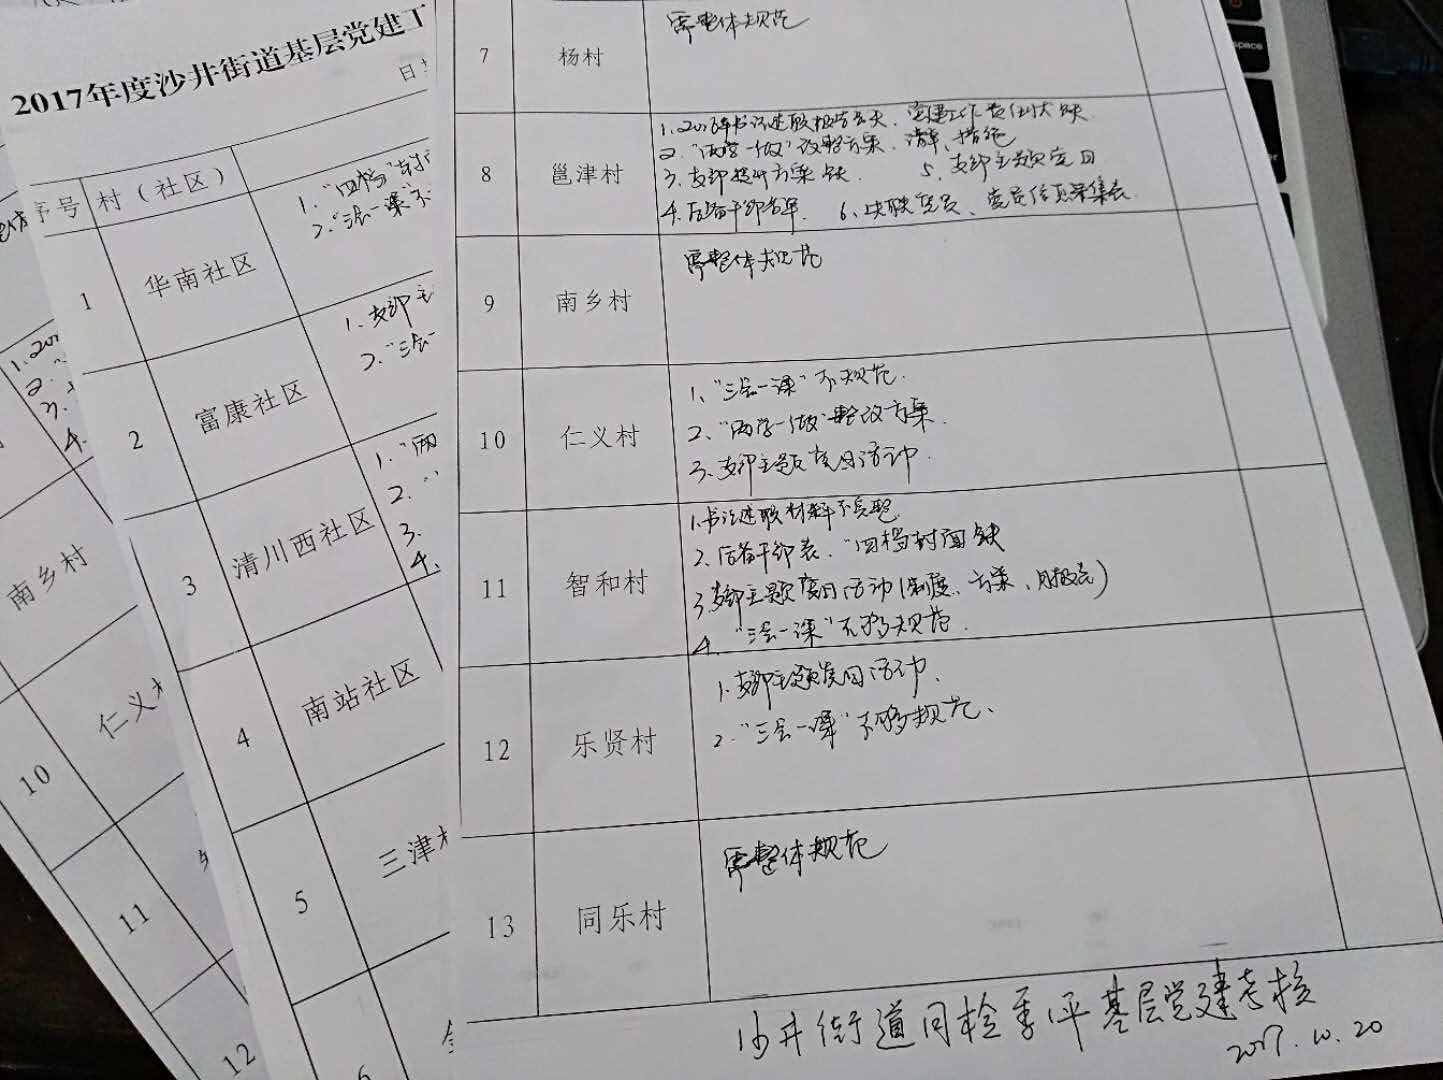 2017年度沙井街道基层党建工
序号
村（社区）
1
华南社区
1. "四档"封
2. "三会一课"不
2
富康社区
1. 支部主
2. "三会一
3
清川西社区
1. "两
2. "
3.
4.
4
南站社区
5
三津村
6
1. 20
2. "
3.
4.
南乡村
10
仁义村
11
12
7
杨村
需整体规范
8
邕津村
1. 2016年书记述职报告、党建工作责任状缺
2. "两学一做"议整方案、清单、措施
3. 支部提升方案缺. 5. 支部主题党日
4. 后备干部名单. 6. 失联党员、党员信息采集表.
9
南乡村
需整体规范
10
仁义村
1. "三会一课"不规范.
2. "两学一做"整改方案.
3. 支部主题党日活动.
11
智和村
1. 书记述职材料不完整
2. 后备干部表、"四档封面缺
3. 支部主题党日活动（制度、方案、月报表）
4. "三会一课"不够规范.
12
乐贤村
1. 支部主题党日活动.
2. "三会一课"不够规范.
13
同乐村
需整体规范
沙井街道月检季评基层党建考核
2017.10.20